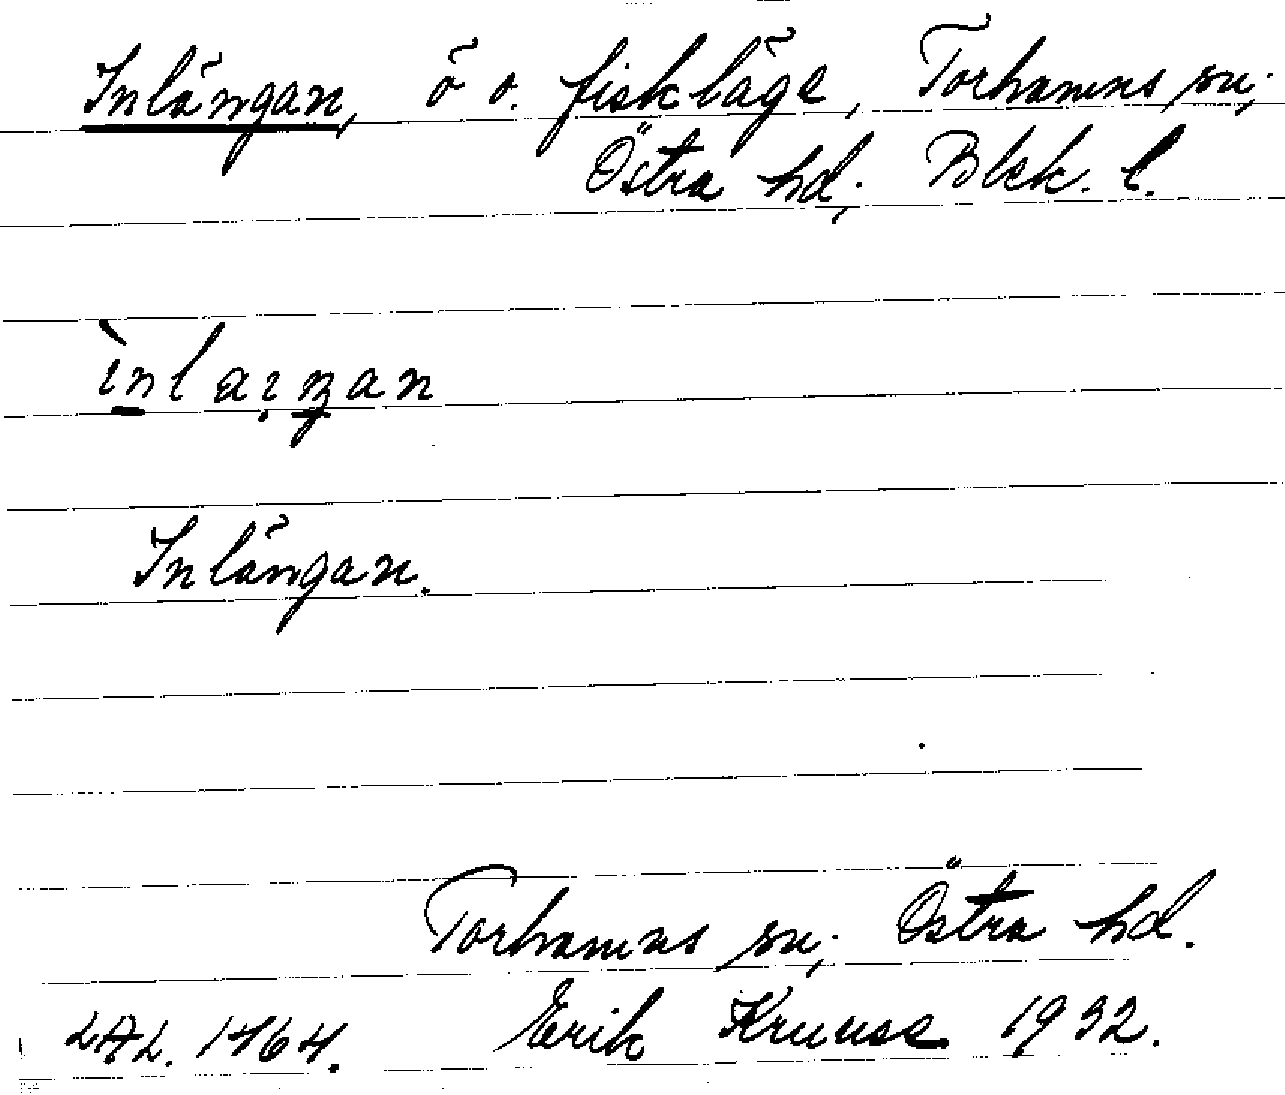 Inlängan, ö o. fiskläge, Torhamns sn;
Östra hd; Blek. l.
Inlängan.
Torhamns sn; Östra hd.
LAL. 1464. Erik Kruuse 1932.